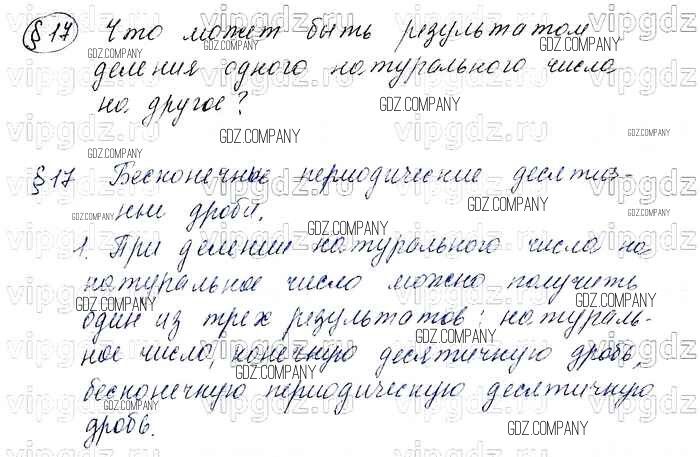 § 17 Что может быть результатом
деления одного натурального числа
на другое?
§ 17 Бесконечные периодические десятич-
ные дроби.
1. При делении натурального числа на
натуральное число можно получить
один из трех результатов: натураль-
ное число, конечную десятичную дробь,
бесконечную периодическую десятичную
дробь.
vipgdz.ru
GDZ.COMPANY